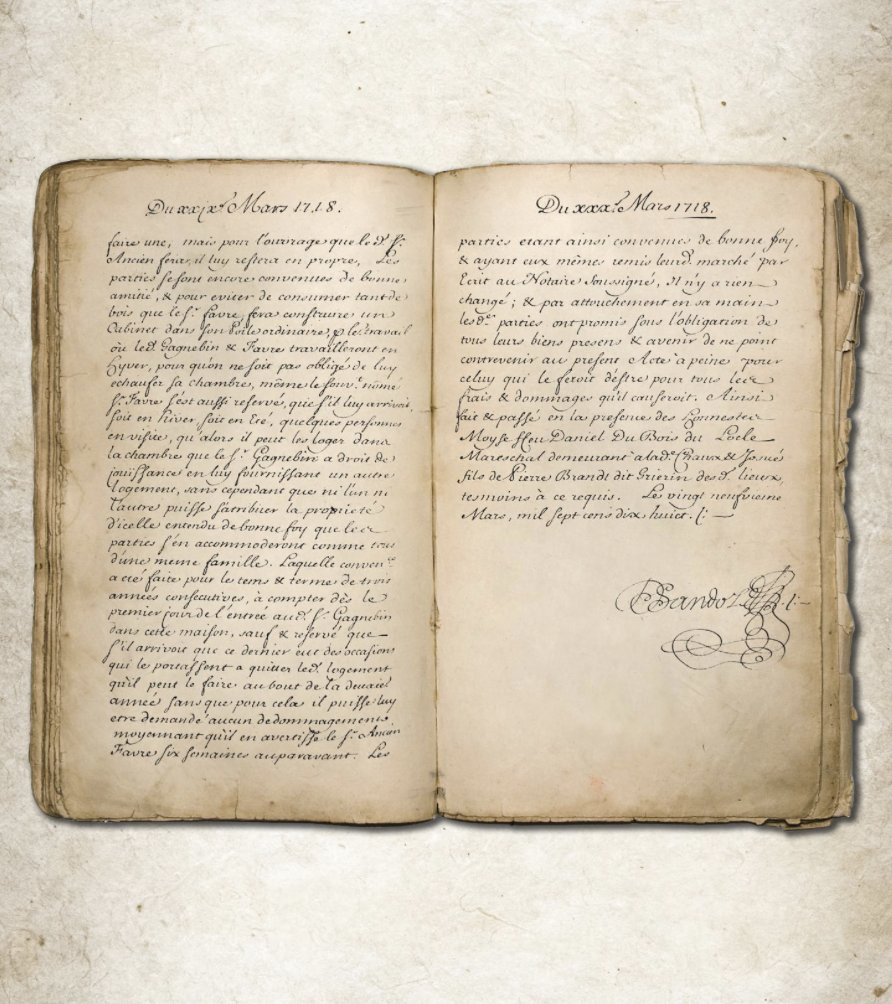 Du xxjx.e Mars 1718.
faire une, mais pour l'ouvrage que le d.t S.r
Ancien fera, il luy restera en propre. Les
parties se sont encore convenues de bonne
amitié, & pour eviter de consumer tant de
bois que le S.r Favre, fera construire un
Cabinet dans son Poile ordinaire, p.r le travail
où led. Gagnebin & Favre travailleront en
Hyver, pour qu'on ne soit pas obligé de luy
echaufer sa chambre, même le souv.t nomé
S.r Favre s'est aussi reservé, que s'il luy arrivoit,
soit en hiver, soit en Eté, quelques personnes
en visite, qu'alors il peut les loger dans
la chambre que le S.r Gagnebin a droit de
jouissance en luy fournissant un autre
logement, sans cependant que ni l'un ni
l'autre puisse s'atribuer la propriété
d'icelle entendu de bonne foy que lesd.
parties s'en accommoderont comme tous
d'une meme famille. Laquelle conven.ce
a eté faite pour le tems & terme de trois
années consecutives, à compter dès le
premier jour de l'entrée aud.t S.r Gagnebin
dans cette maison, sauf & reservé que
s'il arrivoit que ce dernier eut des occasions
qui le portassent a quitter led.t logement
qu'il peut le faire au bout de la
année sans que pour cela il puisse luy
etre demandé aucun dedommagement
moyennant qu'il en avertisse le S.r Ancien
Favre six semaines auparavant. Les
Du xxx.e Mars 1718.
parties etant ainsi convenues de bonne foy,
& ayant eux mêmes remis leurd. marché par
Ecrit au Notaire soussigné, Il n'y a rien
changé; & par attouchement en sa main
lesd.es parties ont promis sous l'obligation de
tous leurs biens presens & avenir de ne point
contrevenir au present Acte a peine pour
celuy qui le feroit d'estre pour tous les
frais & dommages qu'il causeroit. Ainsi
fait & passé en la presence des Honnestes
Moyse ffeu Daniel Du Bois du Locle
Mareschal demeurant a lad.e Chaux & Josué
fils de Pierre Brandt dit Grierin desd. lieux,
tesmoins à ce requis. Le vingt neufviesme
Mars, mil sept cens dix huict. /: —
Sandoz